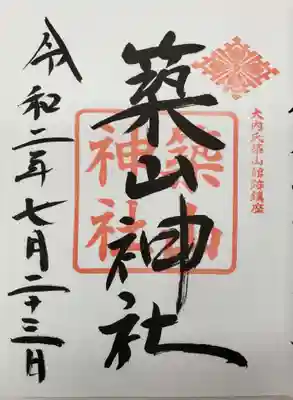 大内氏築山館跡鎮座
築山神社
築山神社
令和二年七月二十三日